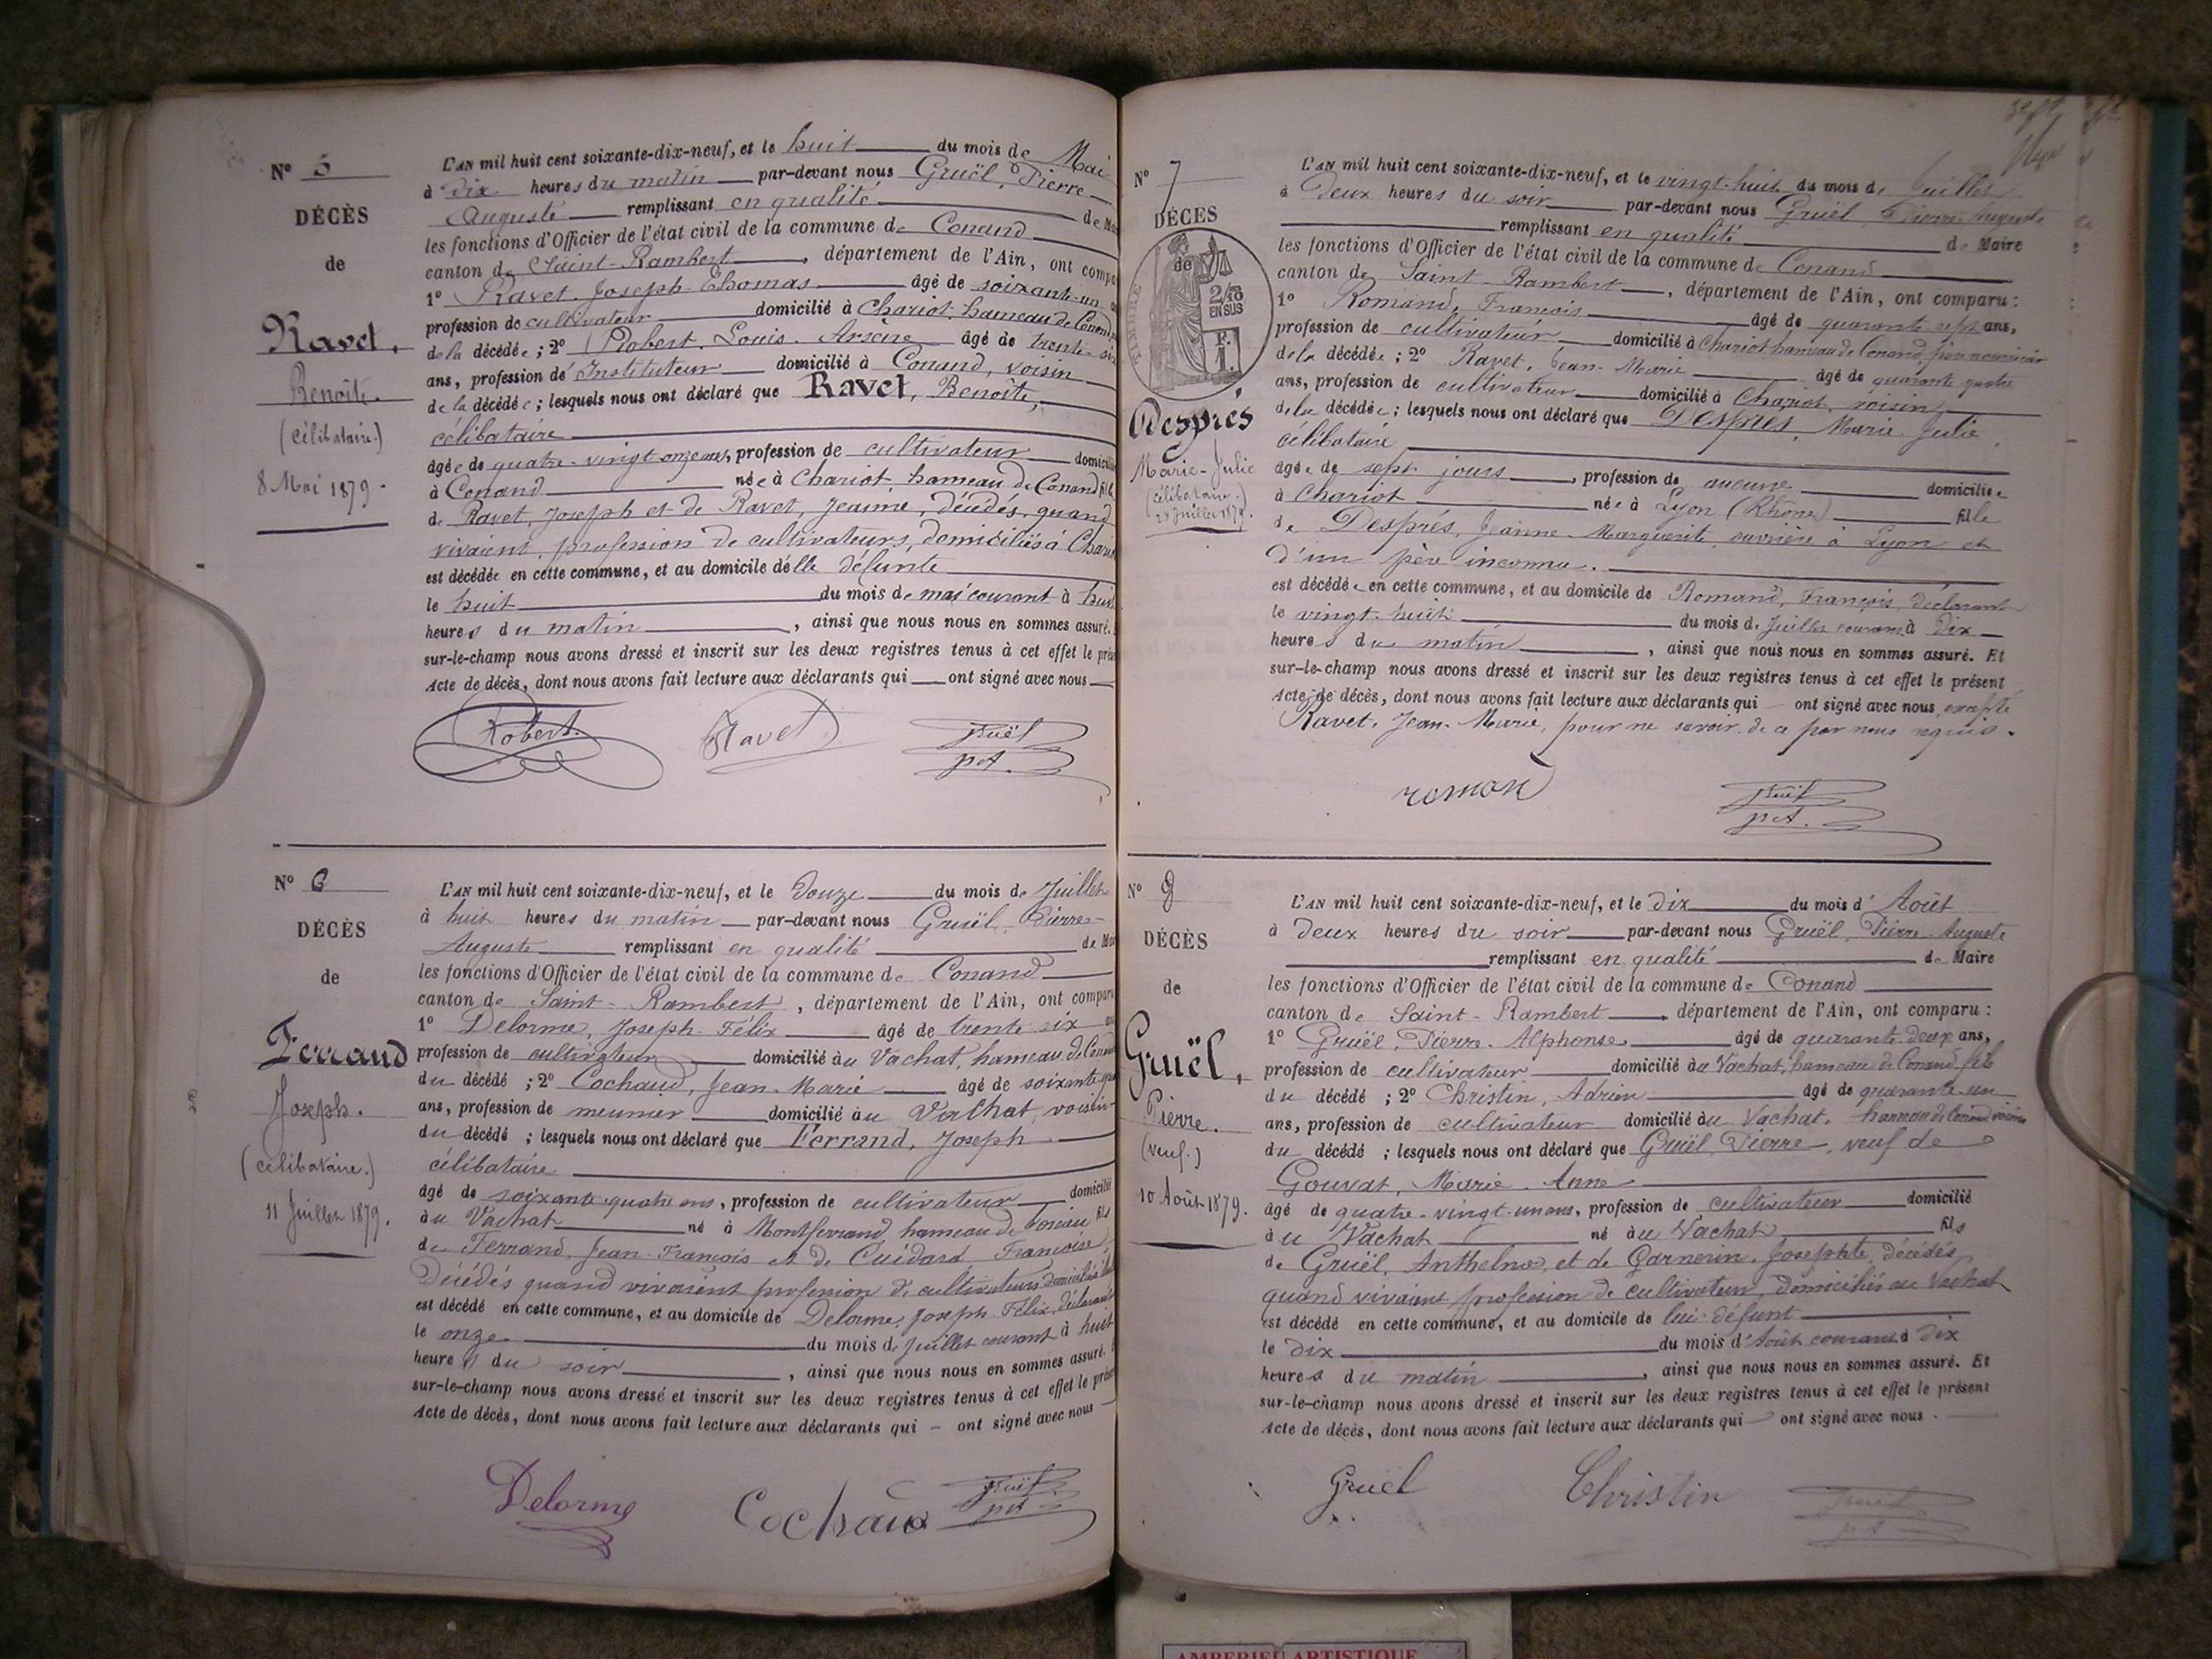 N° 5
DÉCÈS
de
Ravet,
Benoîte.
(célibataire.)
8 Mai 1879.
L'AN mil huit cent soixante-dix-neuf, et le huit du mois de Mai
à dix heures du matin par-devant nous Gruël, Pierre
Auguste remplissant en qualité de
les fonctions d'Officier de l'état civil de la commune de Conand
canton de Saint-Rambert, département de l'Ain, ont
1° Ravet, Joseph Thomas âgé de soixante-un
profession de cultivateur domicilié à Chariot, hameau de Conand
de la décédée ; 2° Robert, Louis-Arsène âgé de trente
ans, profession de Instituteur domicilié à Conand, voisin
de la décédée ; lesquels nous ont déclaré que Ravet, Benoîte,
célibataire
âgée de quatre-vingt onze ans, profession de cultivateur
à Conand née à Chariot hameau de Conand
de Ravet, Joseph et de Ravet, Jeanne, décédés, quand
vivaient, profession de cultivateurs, domiciliés à
est décédée en cette commune, et au domicile d'elle défunte
le huit du mois de mai courant à
heures du matin, ainsi que nous nous en sommes assuré.
sur-le-champ nous avons dressé et inscrit sur les deux registres tenus à cet effet le
Acte de décès, dont nous avons fait lecture aux déclarants qui ont signé avec nous
Robert.
Ravet
Gruël
N° 6
DÉCÈS
de
Ferrand
Joseph.
(célibataire.)
11 Juillet 1879.
L'AN mil huit cent soixante-dix-neuf, et le douze du mois de Juillet
à huit heures du matin par-devant nous Gruël, Pierre-
Auguste remplissant en qualité de
les fonctions d'Officier de l'état civil de la commune de Conand
canton de Saint-Rambert, département de l'Ain, ont
1° Delorme, Joseph-Félix âgé de trente six
profession de cultivateur domicilié au Vachat, hameau de
du décédé ; 2° Cochaud, Jean-Marie âgé de soixante
ans, profession de meunier domicilié au Vachat, voisin
du décédé ; lesquels nous ont déclaré que Ferrand, Joseph
célibataire
âgé de soixante-quatre ans, profession de cultivateur domicilié
au Vachat né à Montferrand hameau de fils
de Ferrand, Jean-François et de Cuidard, Françoise
Décédés quand vivaient profession de cultivateurs domiciliés
est décédé en cette commune, et au domicile de Delorme, Joseph Félix, déclarant
le onze du mois de Juillet courant à huit
heures du soir, ainsi que nous nous en sommes assuré.
sur-le-champ nous avons dressé et inscrit sur les deux registres tenus à cet effet le
Acte de décès, dont nous avons fait lecture aux déclarants qui - ont signé avec nous
Delorme
Cochaud
Gruël
N° 7
DÉCÈS
de
2/10
EN SUS
F.
1.
Després
Marie-Julie
(célibataire.)
28 Juillet 1879.
L'AN mil huit cent soixante-dix-neuf, et le vingt-huit du mois de Juillet
à Deux heures du soir par-devant nous Gruël, Pierre Auguste
remplissant en qualité de Maire
les fonctions d'Officier de l'état civil de la commune de Conand
canton de Saint-Rambert, département de l'Ain, ont comparu :
1° Romand, François âgé de quarante sept ans,
profession de cultivateur domicilié à Chariot hameau de Conand, père nourricier
de la décédée ; 2° Ravet, Jean-Marie âgé de quarante quatre
ans, profession de cultivateur domicilié à Chariot, voisin
de la décédée ; lesquels nous ont déclaré que Després, Marie-Julie,
célibataire
âgée de sept jours, profession de aucune domiciliée
à Chariot née à Lyon (Rhône) fille
de Després, Jeanne-Marguerite, ouvrière à Lyon et
d'un père inconnu.
est décédée en cette commune, et au domicile de Romand, François, déclarant
le vingt-huit du mois de Juillet courant à Dix
heures du matin, ainsi que nous nous en sommes assuré. Et
sur-le-champ nous avons dressé et inscrit sur les deux registres tenus à cet effet le présent
Acte de décès, dont nous avons fait lecture aux déclarants qui ont signé avec nous excepté
Ravet, Jean-Marie, pour ne savoir, de ce par nous requis.
romand
Gruël
N° 8
DÉCÈS
de
Gruël,
Pierre.
(veuf.)
10 Août 1879.
L'AN mil huit cent soixante-dix-neuf, et le Dix du mois d'Août
à Deux heures du soir par-devant nous Gruël, Pierre-Auguste
remplissant en qualité de Maire
les fonctions d'Officier de l'état civil de la commune de Conand
canton de Saint-Rambert, département de l'Ain, ont comparu :
1° Gruël, Pierre-Alphonse âgé de quarante-deux ans,
profession de cultivateur domicilié au Vachat, hameau de Conand, fils
du décédé ; 2° Christin, Adrien âgé de quarante-un
ans, profession de cultivateur domicilié au Vachat, hameau de Conand voisin
du décédé ; lesquels nous ont déclaré que Gruël, Pierre, veuf de
Gouvat, Marie-Anne
âgé de quatre-vingt-un ans, profession de cultivateur domicilié
au Vachat né au Vachat fils
de Gruël, Anthelme, et de Garnerin, Josephte, décédés
quand vivaient profession de cultivateurs, domiciliés au Vachat
est décédé en cette commune, et au domicile de lui défunt
le dix du mois d'Août courant à dix
heures du matin, ainsi que nous nous en sommes assuré. Et
sur-le-champ nous avons dressé et inscrit sur les deux registres tenus à cet effet le présent
Acte de décès, dont nous avons fait lecture aux déclarants qui ont signé avec nous.
Gruël
Christin
Gruël
AMBERIEU ARTISTIQUE